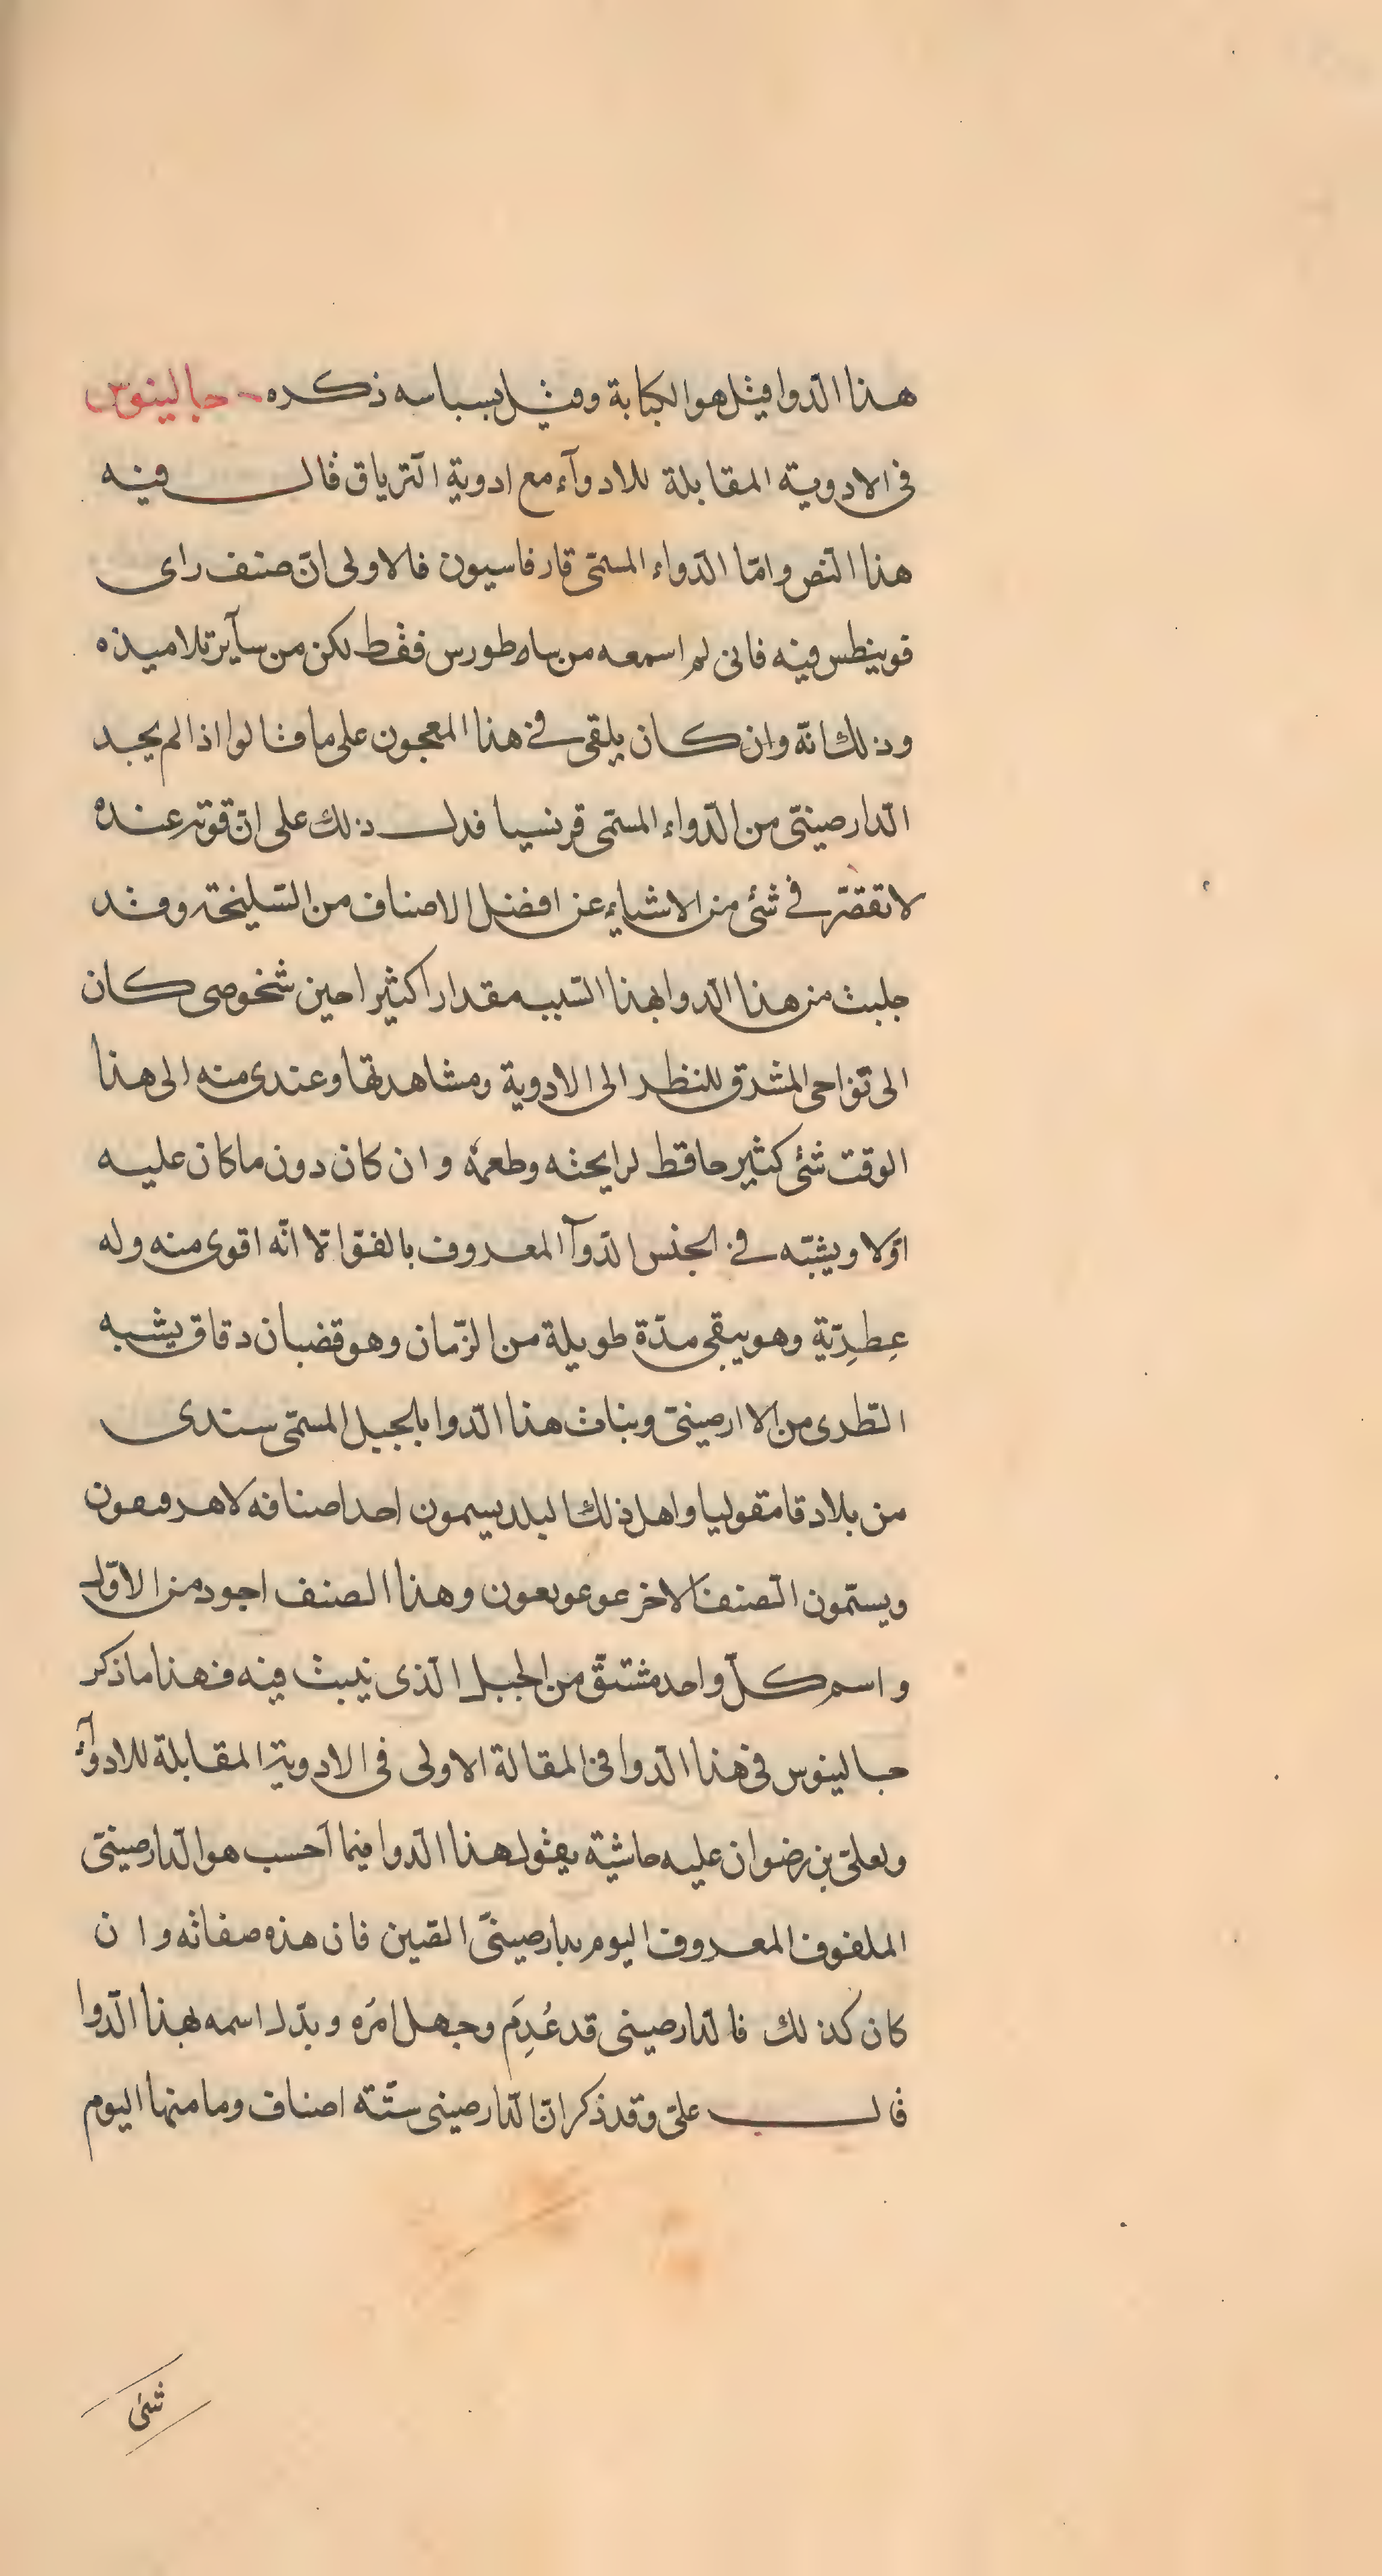 هذا الدوا فيثل هو الكبابة وقيل بسباسه ذكره جالينوس
فى الادوية المقابلة للادوآء مع ادوية الترياق قال فيه
هذا النص وامّا الدّواء المسمّى قارفاسيون فالاولى انّ صنف راى
قوينطس فيه فانى لم اسمعه من ساطورس فقط لكن من سآير تلاميذه
وذلك انّه وان كان يلقى فى هذا المعجون على ما قالوا اذا لم يجد
الدّارصينىّ من الدّواء المسمّى قرنسيا فدل ذلك على انّ قوته عنده
لا تقصّر فى شئ من الاشياء عن افضل الاصناف من السّليخة وقد
جلبت من هذا الدوا بهذا السّبب مقدارا كثيرا حين شخوصى كان
الى نواحى المشرق للنظر الى الادوية ومشاهدتها وعندى منه الى هذا
الوقت شئ كثير حافظ لرايحته وطعمه وان كان دون ما كان عليه
اوّلا ويشبّه فى الجنس الدّوآ المعروف بالفوّ الّا انّه اقوى منه وله
عِطرِيّة وهو يبقى مدّة طويلة من الزّمان وهو قضبان دقاق يشبه
الطرى من الاارصينىّ ونبات هذا الدّوا بالجبل المسمّى سندى
من بلاد قامقوليا واهل ذلك البلد يسمون احد اصنافه
ويسمّون الصنف الاخر وهذا الصنف اجود من الاوّل
واسم كلّ واحد مشتقّ من الجبل الّذى ينبت فيه فهذا ما ذكر
جالينوس فى هذا الدّوا فى المقالة الاولى فى الادوية المقابلة للادوآء
ولعلىّ بن رضوان عليه حاشية يقول هذا الدّوا فيما احسب هو الدّارصينىّ
الملفوف المعروف اليوم بدارصينىّ الصّين فان هذه صفاته وان
كان كذلك فالدّارصينى قد عُدِمَ وجهل امره وبدّل اسمه بهذا الدّوا
قال علىّ وقد ذكر انّ الدّارصينى ستّة اصناف وما منها اليوم
شئ